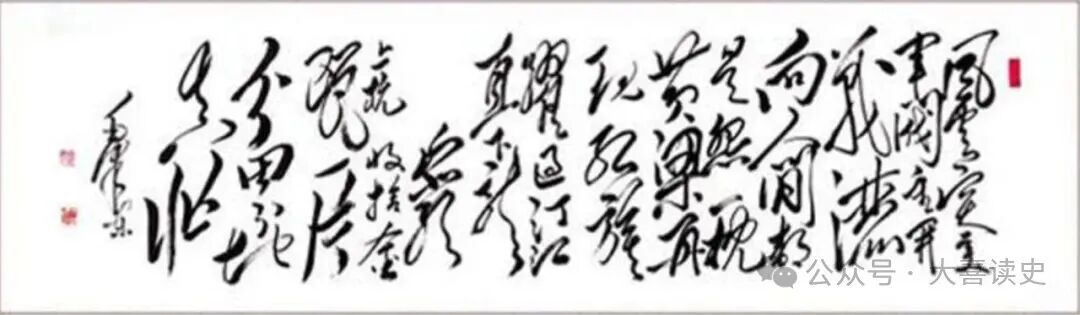 风云突变
军阀重开
战洒
向人间都
是怨一枕
黄粱再
现红旗
跃过汀江
直下龙
岩
上杭收拾金
瓯一片
分田分地
真忙
毛泽东
公众号·大喜读史